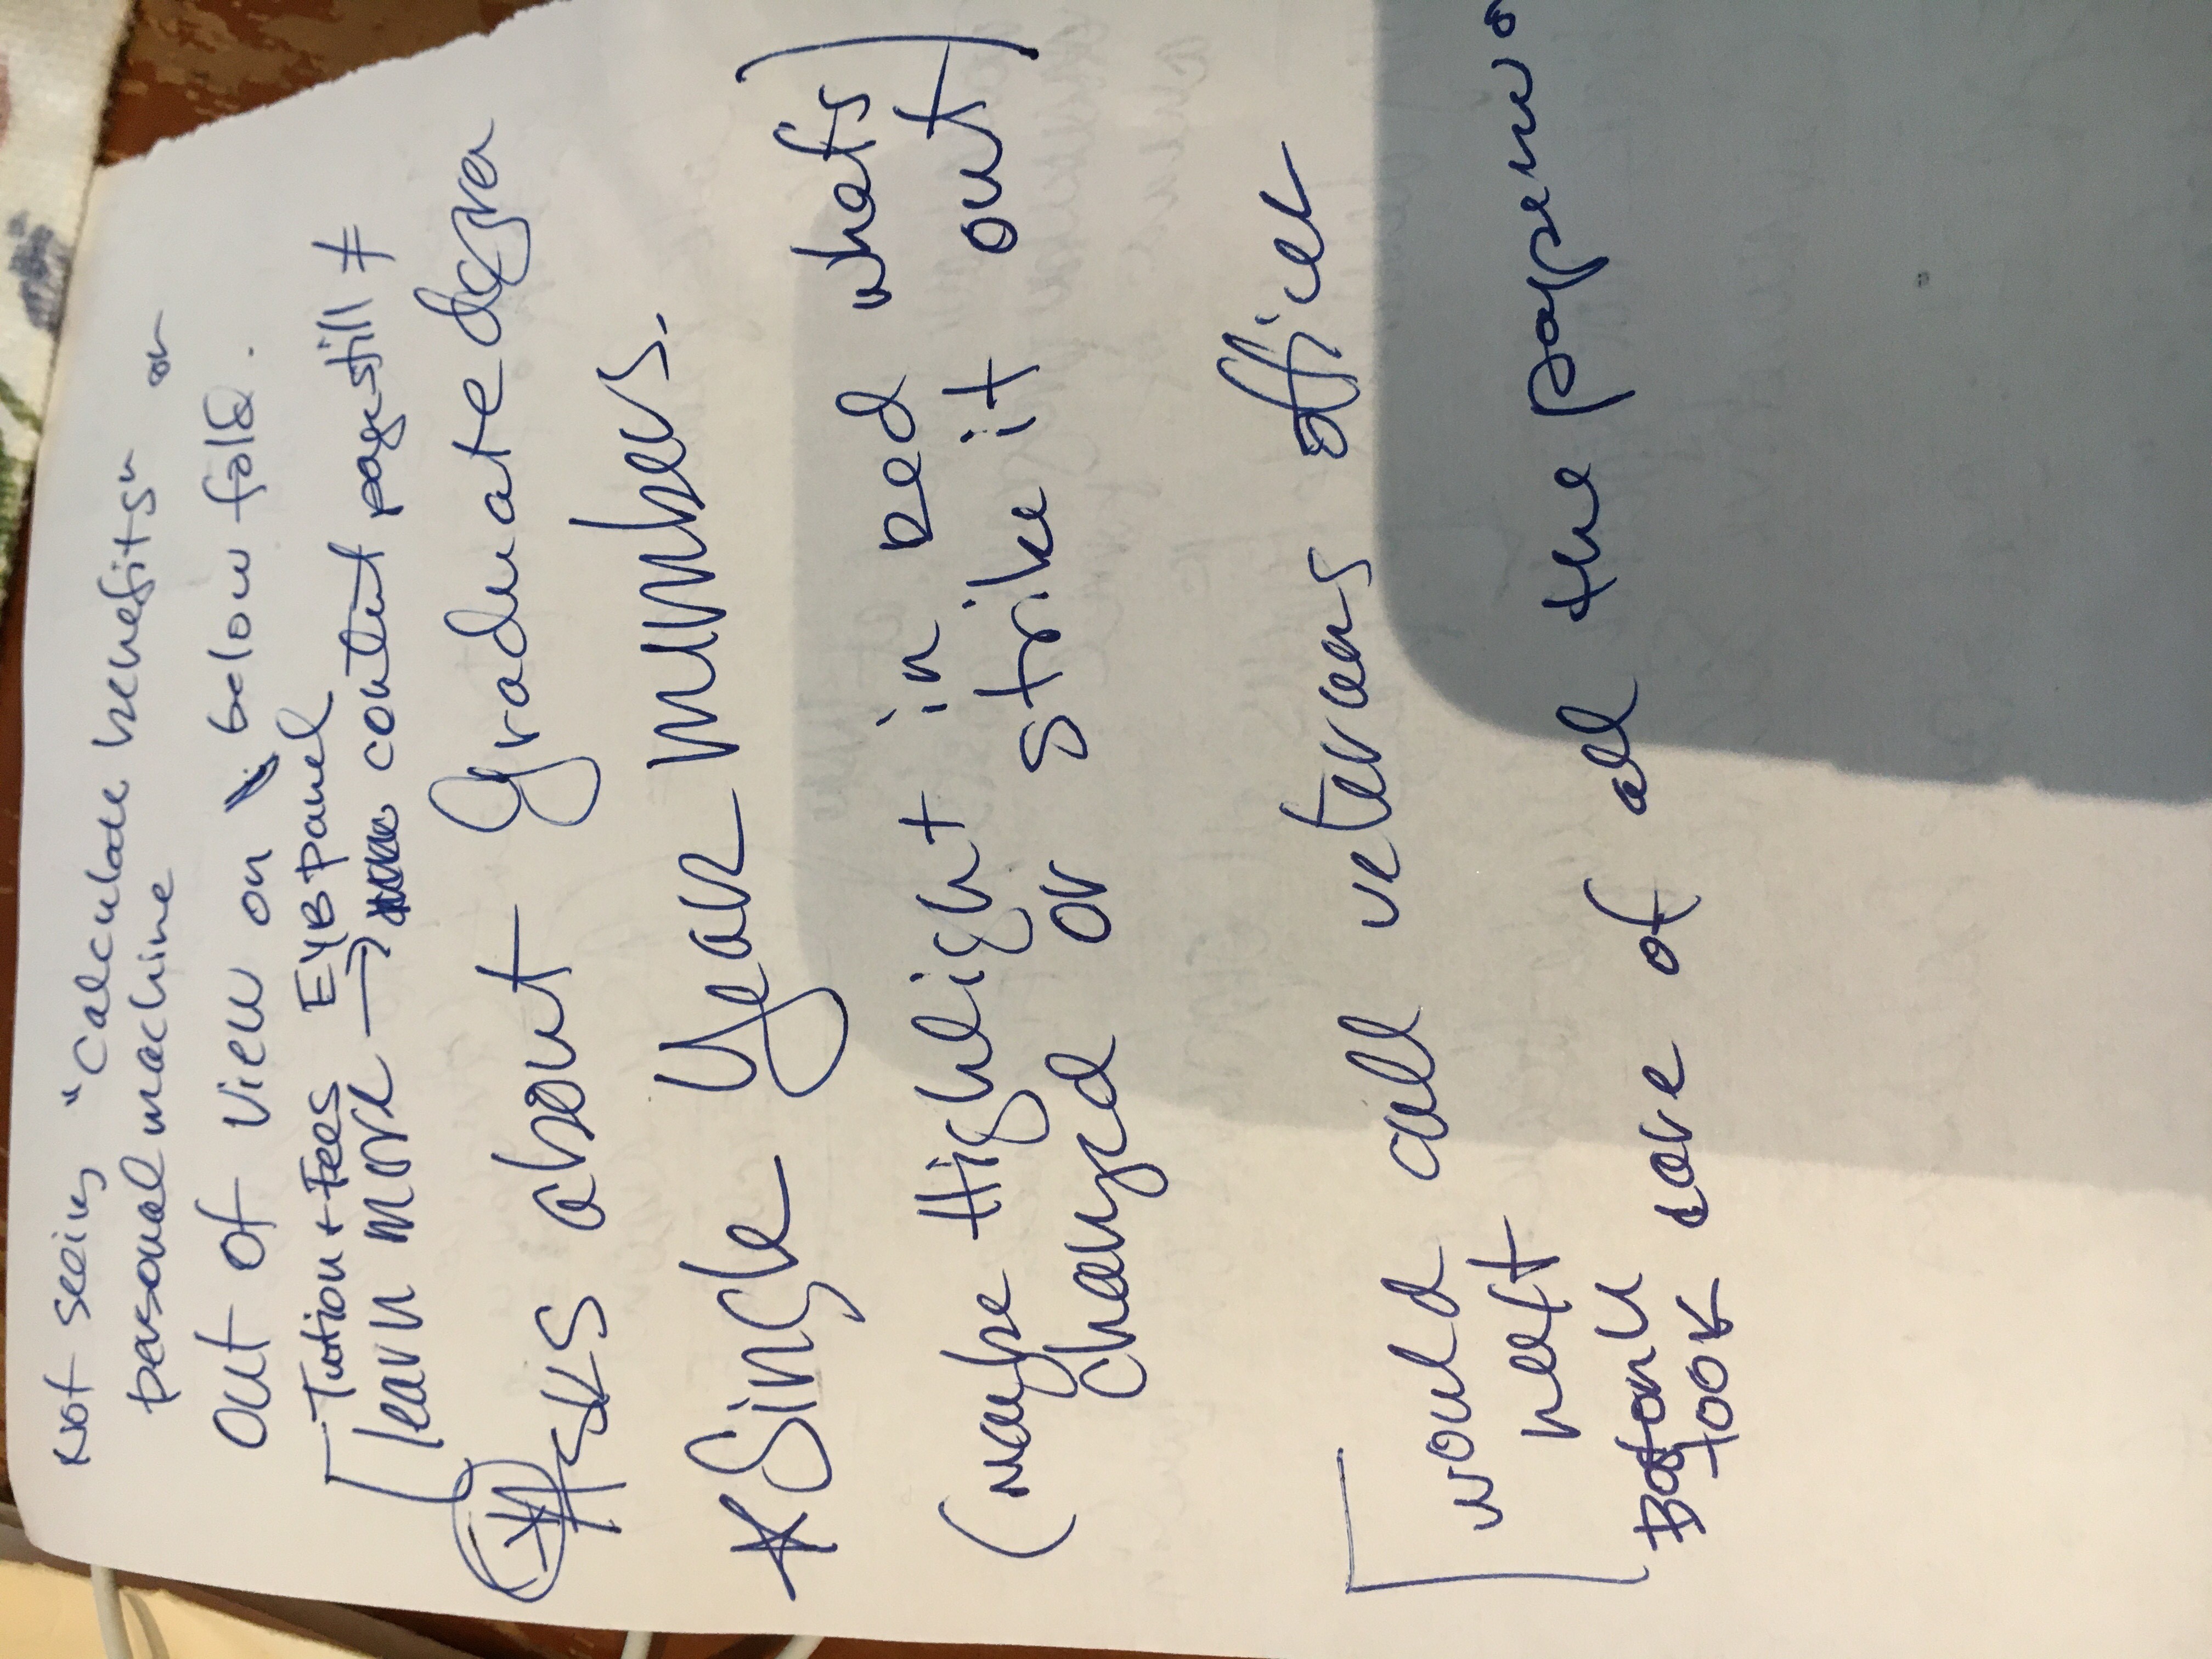 Not seeing "Calculate benefits" on
personal machine
out of view on below fold.
Tution + Fees EYB panel
learn more → content page still ≠
* Asks about Graduate degra
* Single Year numbers.
(maybe Highlight in red what's
changed or strike it out)
would call veterans officer
next
Boston U
took care of all the paperwo